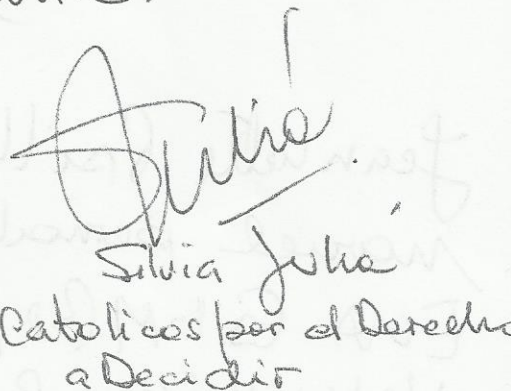 Silvia Juliá
Católicas por el Derecho
a Decidir